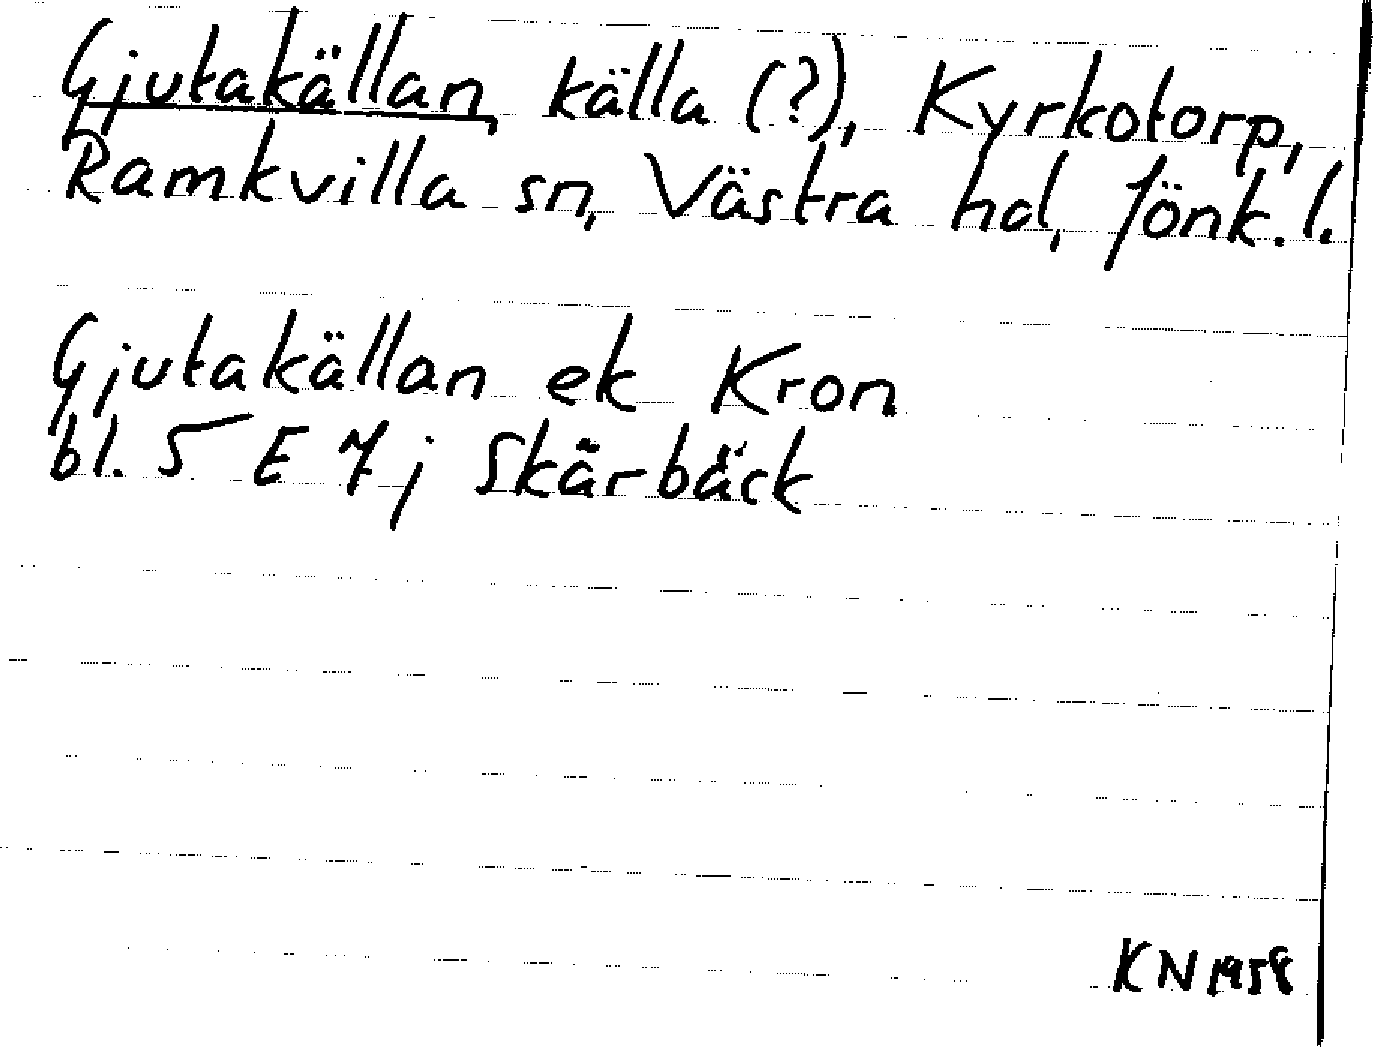 Gjutakällan, källa (?), Kyrkotorp,
Ramkvilla sn, Västra hd, Jönk. l.
Gjutakällan ek Kron
bl. 5 E 7 j Skärbäck
KN 1958